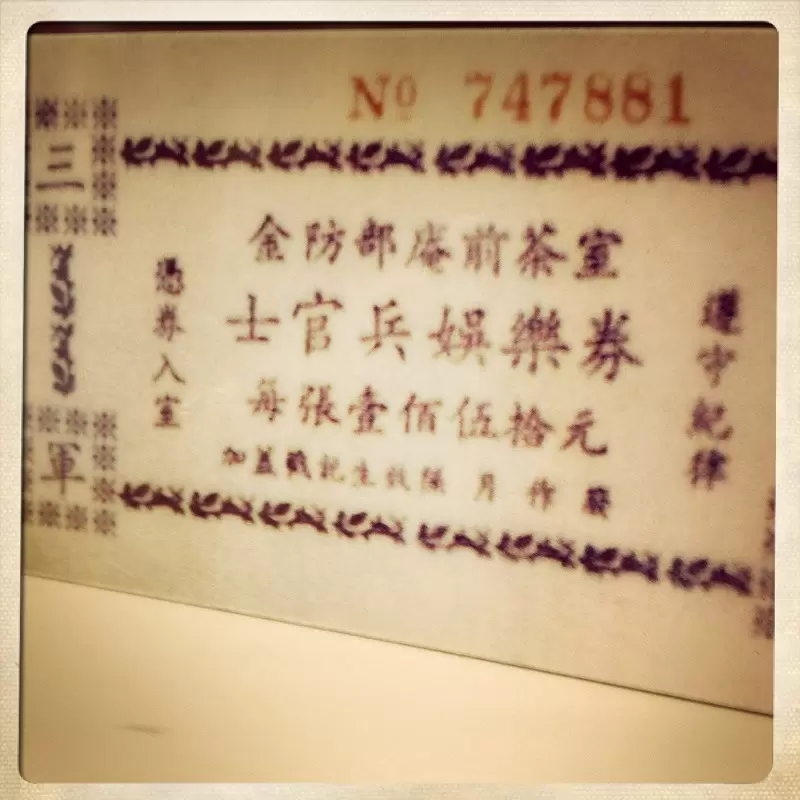 No 747881
金防部庵前茶室
士官兵娛樂券
每張壹佰伍拾元
加蓋戳記生效隔月作廢
憑券入室
遵守紀律
三
軍